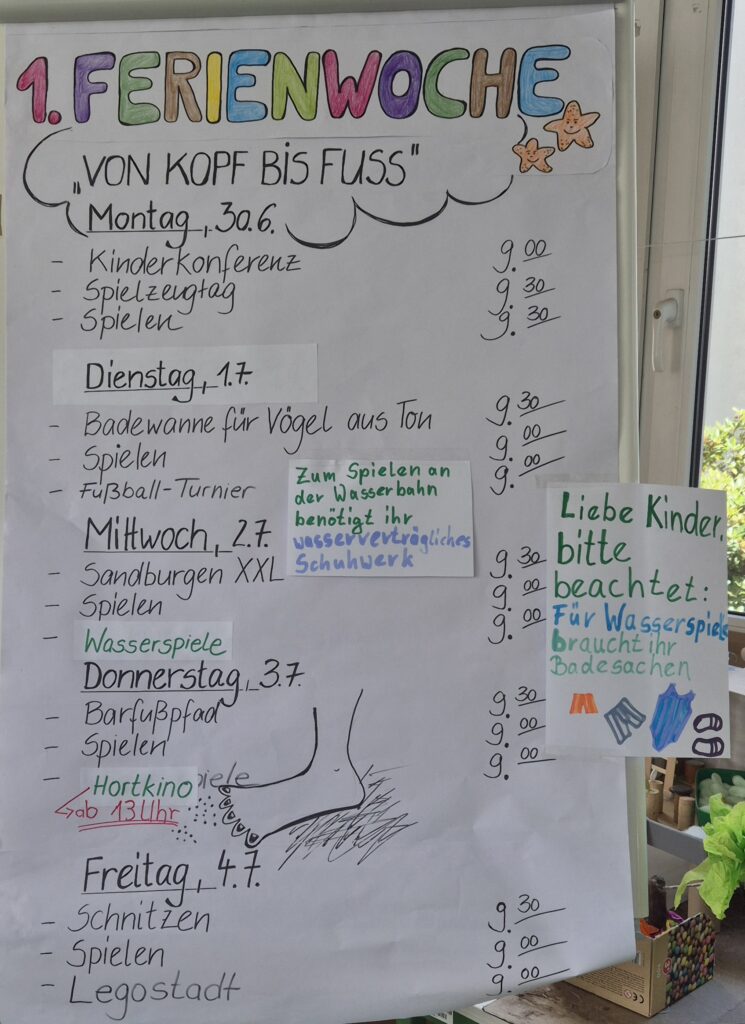 1. FERIENWOCHE
„VON KOPF BIS FUSS"
Montag, 30.6.
- Kinderkonferenz 9.00
- Spielzeugtag 9.30
- Spielen 9.30
Dienstag, 1.7.
- Badewanne für Vögel aus Ton 9.30
- Spielen 9.00
- Fußball-Turnier 9.00
Zum Spielen an
der Wasserbahn
benötigt ihr
wasserverträgliches
Schuhwerk
Mittwoch, 2.7.
- Sandburgen XXL 9.30
- Spielen 9.00
- Wasserspiele 9.00
Liebe Kinder,
bitte
beachtet:
Für Wasserspiele
braucht ihr
Badesachen
Donnerstag, 3.7.
- Barfußpfad 9.30
- Spielen 9.00
- Hortkino 9.00
ab 13 Uhr
Freitag, 4.7.
- Schnitzen 9.30
- Spielen 9.00
- Legostadt 9.00